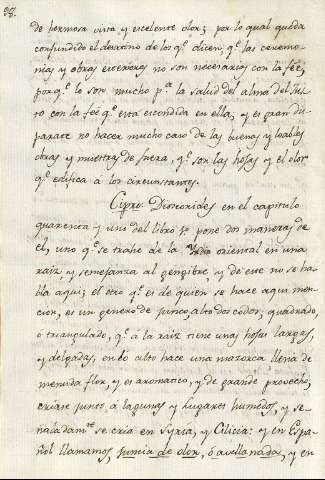 98.
de hermosa vista y escelente olor; por lo qual queda
confundido el desatino de los q.e dicen, q.e las ceremo-
nias y obras exteriores no son necesarias con la feé,
porq.e lo son mucho p.a la salud del alma del
to con la feé q.e está escondida en ella; y es gran dis-
parate no hacer mucho caso de las buenas y loables
obras y muestras de fuera, q.e son las hojas y el olor
q.e edifica a los circunstantes.
Cipro. Dioscorides en el capitulo
quarenta y uno del libro pone dos maneras de
el, uno q.e se trahe de la India oriental en una
raiz y semejanza al gengibre y de este no se ha-
bla aqui; el otro q.e es de quien se hace aqui men-
cion, es un genero de junco alto dos codos, quadrado,
ó triangulado, q.e á la raiz tiene unas hojas largas,
y delgadas, en lo alto hace una mazorca llena de
menuda flor, y es aromatico, y de grande provecho,
criase junto á lagunas y lugares humedos, y se-
ñaladam.te se cria en Syria, y Cilicia: y en Espa-
ñol llamamos, juncia de olor, ó avellanada, y en